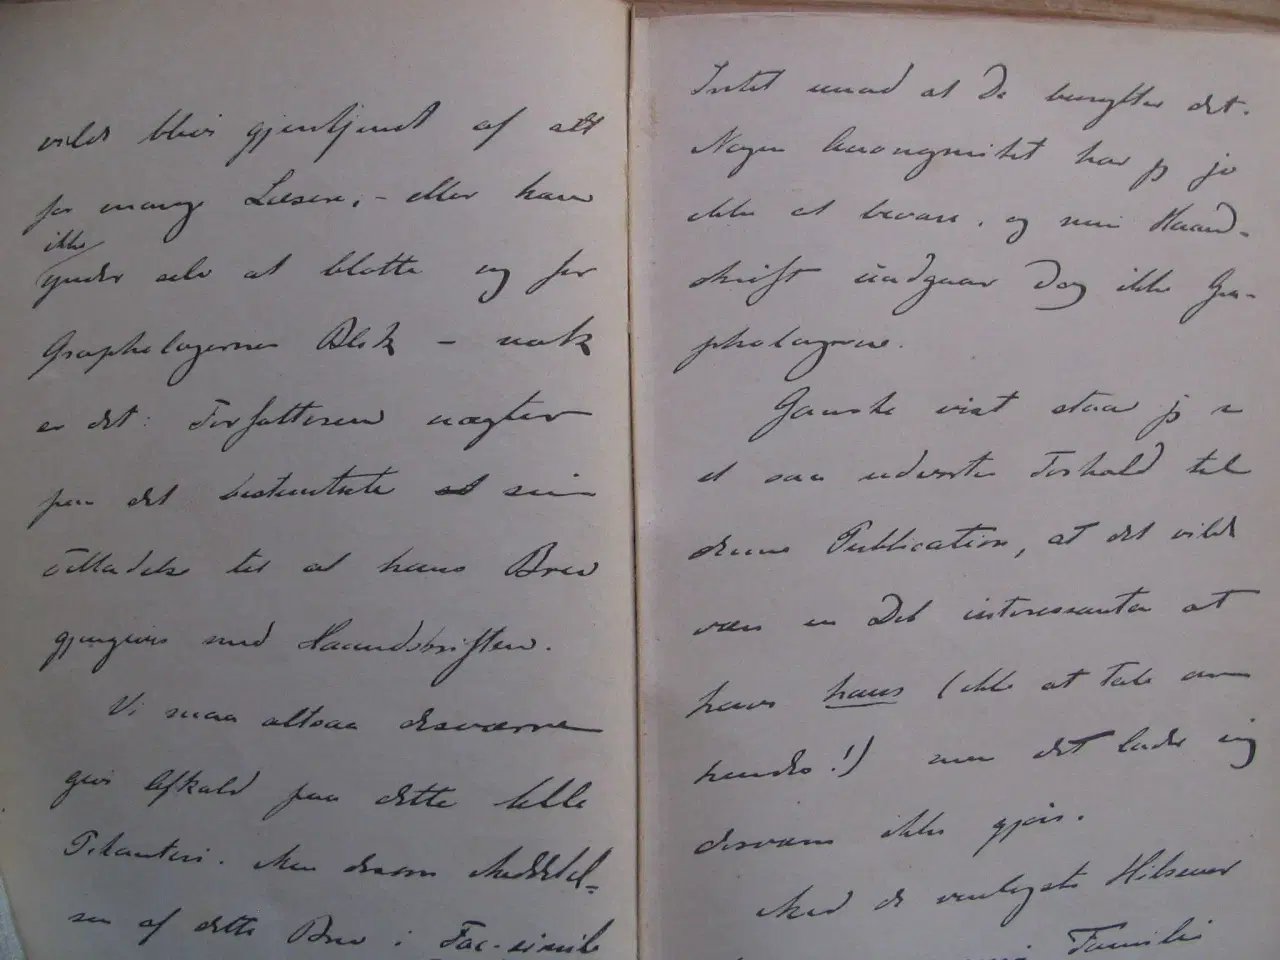 vilde blive gjenkjendt af alt
for mange Læsere; – eller han
ikke
ynder selv at blotte sig for
Graphologernes Blik – nok
er det: Forfatteren nægter
paa det bestemteste at sin
Tilladelse til at hans Brev
gjengives med Haandskriften.
Vi maa altsaa desværre
give Afkald paa dette lille
Pikanteri. Men deres Meddelel-
sen af dette Brev i Fac-simile
Intet imod at De benytter det.
Nogen Anonymitet har jeg jo
ikke at bevare, og min Haand-
skrift undgaar dog ikke Gra-
phologerne.
Ganske vist staar jeg i
et saa yderste Forhold til
denne Publication, at det vilde
være en Del interessantere at
have hans (ikke at tale om
hendes!) men det lader sig
desværre ikke gjøre.
Med de venligste Hilsener
Familie